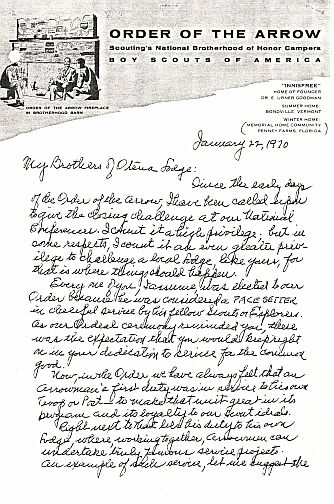 ORDER OF THE ARROW
Scouting's National Brotherhood of Honor Campers
BOY SCOUTS OF AMERICA
ORDER OF THE ARROW FIREPLACE
IN BROTHERHOOD BARN
"INNISFREE"
HOME OF FOUNDER
DR. E. URNER GOODMAN
SUMMER HOME:
BONDVILLE, VERMONT
WINTER HOME:
(MEMORIAL HOME COMMUNITY)
PENNEY FARMS, FLORIDA
January 22, 1970
My Brothers of Otena Lodge:
Since the early days
of the Order of the Arrow, I have been called upon
to give the closing challenge at our National
Conferences. I count it a high privilege. but in
some respects, I count it an even greater priv-
ilege to challenge a local Lodge, like yours, for
that is where things should happen.
Every one of you, I assume, was elected to our
Order because he was considered a PACE SETTER
in cheerful service by his fellow Scouts or Explorers.
As our Ordeal ceremony reminded you, there
was the expectation that you would keep right
on in your dedication to service for the common
good.
Now, in the Order we have always felt that an
Arrowman's first duty was in service to his own
Troop or Post - to make that unit great in its
program and its loyalty to our Scout ideals.
Right next to that lies his duty to his own
Lodge, where, working together, Arrowmen can
undertake truly famous service projects.
An example of such service, let me suggest the